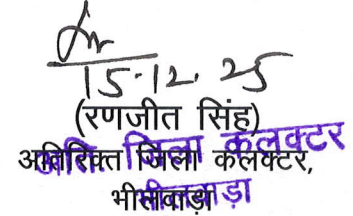 15.12.25
(रणजीत सिंह)
अतिरिक्त जिला कलक्टर,
भीलवाड़ा
अति. जिला कलक्टर
भीलवाड़ा